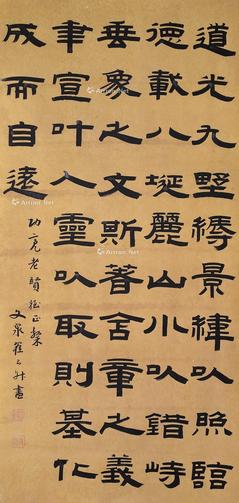 道光九埜溽景緯以照臨
德載八埏麗山川以錯峙
垂象之文斯著含章之義
聿宣叶人靈以取則基化
成而自遠
功亮老賢姪正檠
文泉崔之升書